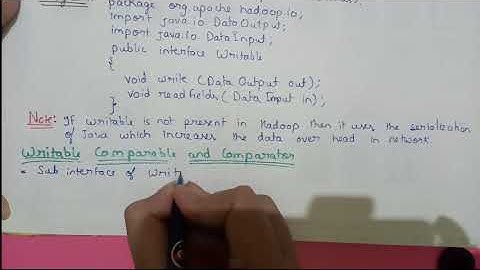 package org.apache hadoop.io;
import java.io DataOutput;
import java.io. DataInput;
public interface Writable
{
void write (Data Output out);
void readfields (Data Input in);
}
Note: If writable is not present in Hadoop then it uses the serialization
of Java which increases the data over head in network.
Writable Comparable and Comparator
Sub interface of writ